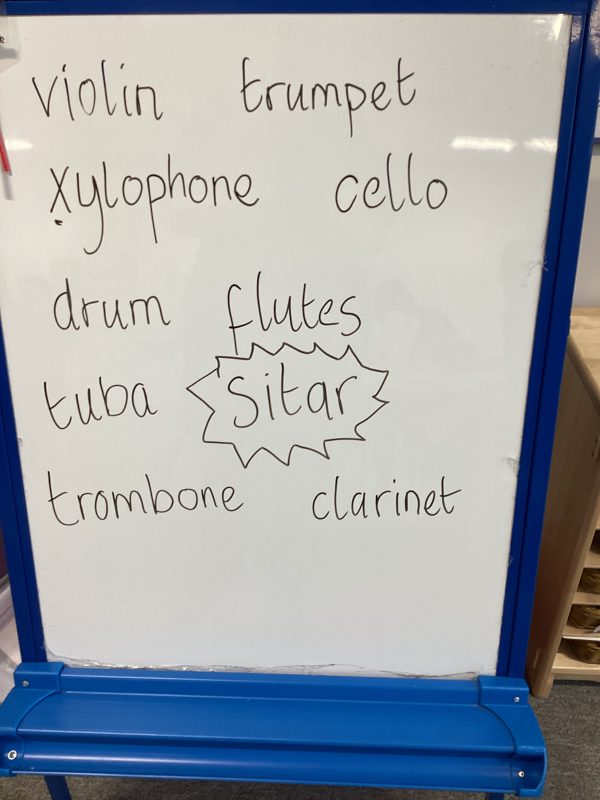 violin trumpet
xylophone cello
drum flutes
tuba sitar
trombone clarinet